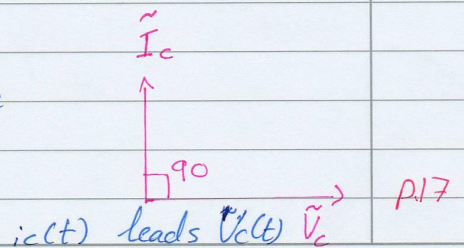 Ĩc
90
p.17
ic(t) leads Vc(t) Ṽc